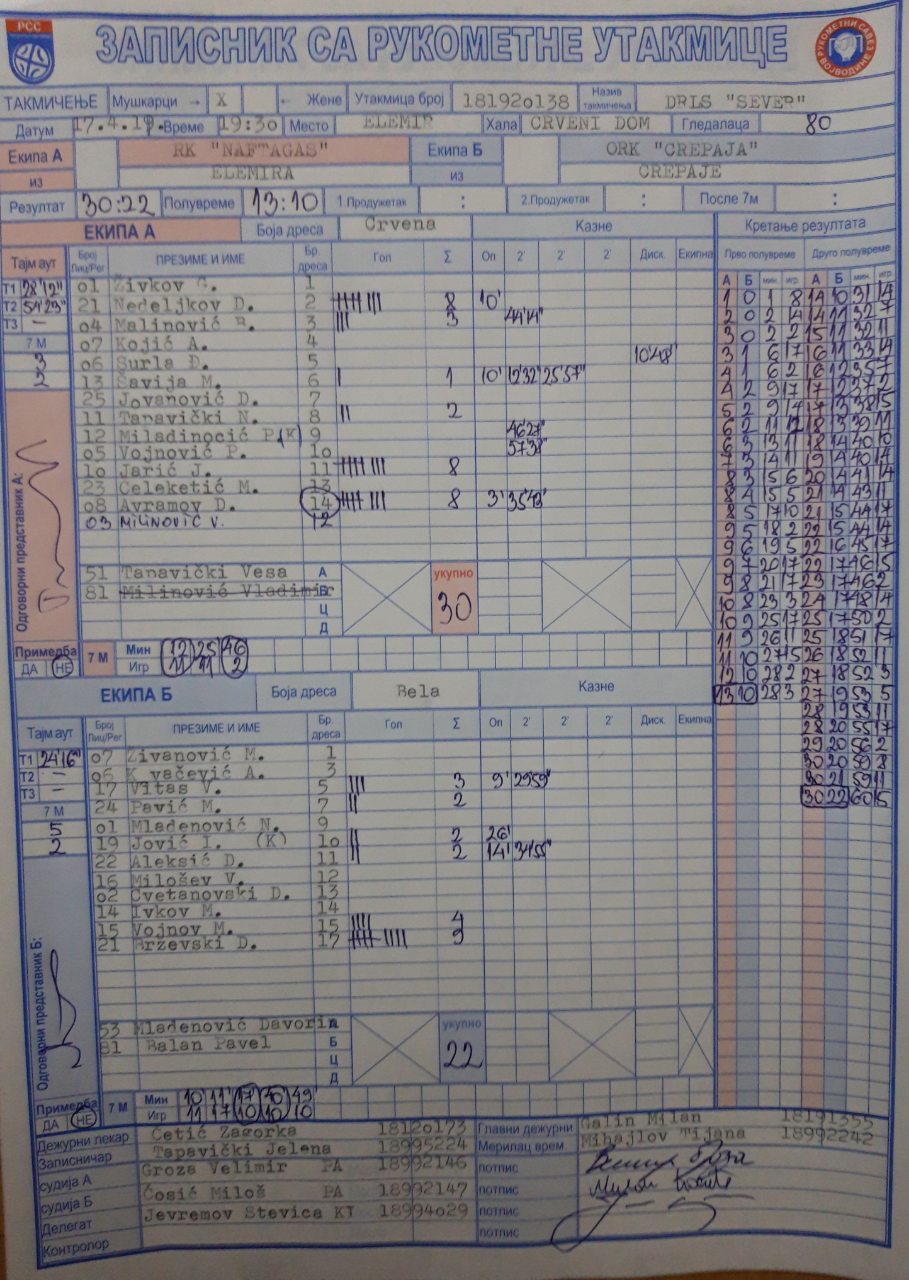 РСС
ЗАПИСНИК СА РУКОМЕТНЕ УТАКМИЦЕ
РУКОМЕТНИ САВЕЗ ВОЈВОДИНЕ
ТАКМИЧЕЊЕ Мушкарци → X ← Жене Утакмица број 181920138 Назив такмичења DRLS "SEVER"
Датум 17.4.19. Време 19:30 Место ELEMIR Хала CRVENI DOM Гледалаца 80
Екипа А RK "NAFTAGAS" Екипа Б ORK "CREPAJA"
из ELEMIRA из CREPAJE
Резултат 30:22 Полувреме 13:10 1.Продужетак : 2.Продужетак : После 7м :
ЕКИПА А Боја дреса Crvena Казне Кретање резултата
Тајм аут Број Лиц/Рег ПРЕЗИМЕ И ИМЕ Бр. дреса Гол Σ Оп 2' 2' 2' Диск. Екипна Прво полувреме Друго полувреме
А Б мин. игр. А Б мин. игр.
Т1 28'12"
Т2 54'23"
Т3 —
7 М
3
2
o1 Živkov G. 1
21 Nedeljkov D. 2 8 10'
o4 Malinović B. 3 3 44'14"
o7 Kojić A. 4
o6 Surla Đ. 5 10'48"
13 Šavija M. 6 1 10' 12'32" 25'57"
25 Jovanović D. 7
11 Tapavički N. 8 2
12 Miladinocić P.(K) 9 46'27"
o5 Vojnović P. 1o 57'38"
1o Jarić J. 11 8
23 Čeleketić M. 13
o8 Avramov D. 14 8 3' 35'43"
03 MILINOVIĆ V. 12
51 Tapavički Vesa А
81 Milinović Vladimir Б
Ц
Д
укупно
30
Одговорни представник А:
Примедба 7 М Мин 12 25 46
ДА НЕ Игр 11 11 2
ЕКИПА Б Боја дреса Bela Казне
Тајм аут Број Лиц/Рег ПРЕЗИМЕ И ИМЕ Бр. дреса Гол Σ Оп 2' 2' 2' Диск. Екипна
Т1 24'16"
Т2 —
Т3 —
7 М
5
2
o7 Živanović M. 1
o6 K vačević A. 3
17 Vitas V. 5 3 9' 29'59"
24 Pavić M. 7 2
o1 Mladenović N. 9
19 Jović I. (K) 1o 2 26'
22 Aleksić D. 11 2 14' 34'55"
16 Milošev V. 12
o2 Cvetanovski D. 13
14 Ivkov M. 14
15 Vojnov M. 15 4
21 Brževski D. 17 9
53 Mladenović Davorin А
81 Balan Pavel Б
Ц
Д
укупно
22
Одговорни представник Б:
Примедба 7 М Мин 10 11 17 30 49
ДА НЕ Игр 11 17 10 10 10
1 0 1 8 14 10 31 14
2 0 2 4 14 11 32 7
3 0 2 2 15 11 32 11
3 1 6 17 16 11 33 14
4 1 6 2 16 12 35 7
4 2 9 17 17 12 37 2
5 2 9 14 17 13 38 15
6 2 11 12 18 13 39 11
6 3 13 11 18 14 40 10
7 3 14 11 19 14 40 14
8 3 15 6 20 14 41 14
8 4 15 5 21 14 43 11
8 5 17 10 21 15 44 17
9 5 18 2 22 15 44 14
9 6 19 5 22 16 45 17
9 7 20 17 22 17 46 5
9 8 21 17 23 17 46 2
10 8 23 3 24 17 48 14
10 9 25 17 25 17 50 2
11 9 26 11 25 18 51 7
11 10 27 15 26 18 52 11
12 10 28 2 27 18 52 3
13 10 28 3 27 19 53 5
28 19 53 11
28 20 55 17
29 20 56 2
30 20 59 8
30 21 59 11
30 22 60 5
Дежурни лекар Ćetić Zagorka 1812o173 Главни дежурни Galin Milan 18191355
Записничар Tapavički Jelena 18995224 Мерилац врем. Mihajlov Tijana 18992242
судија А Groza Velimir PA 18992146 потпис
судија Б Ćosić Miloš PA 18992147 потпис
Делегат Jevremov Stevica KI 18994o29 потпис
Контролор потпис